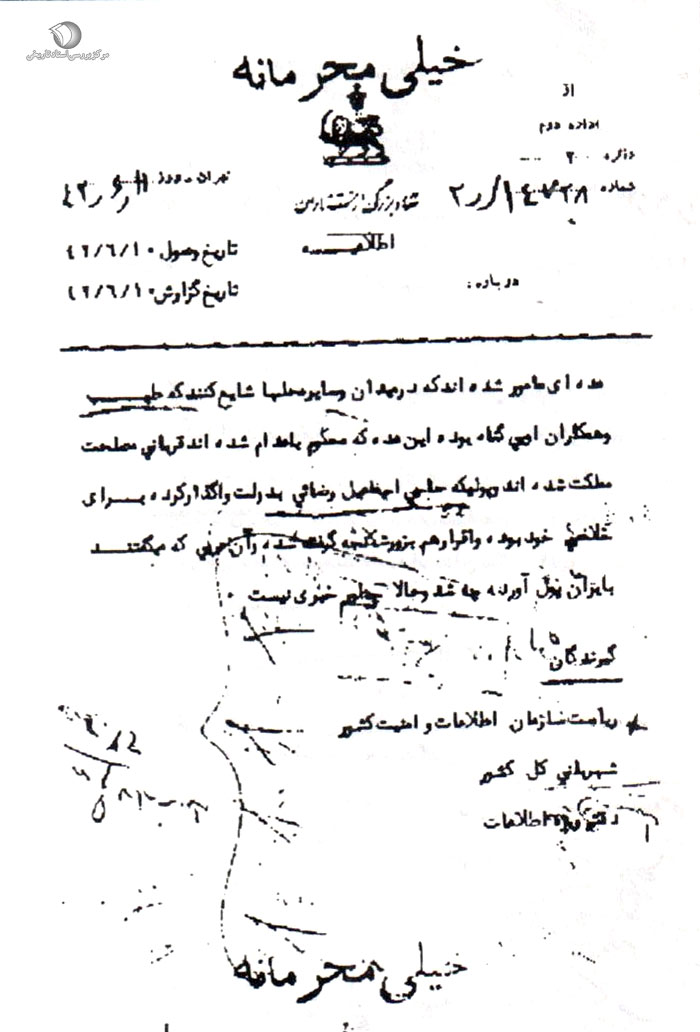 مرکز بررسی اسناد تاریخی
خیلی محرمانه
از
اداده دوم
دائره ۲۰۰
شماره
تهران روز
ستاد بزرگ ارتشتاران
اطلاعیه
تاریخ وصول ۴۲/۶/۱۰
تاریخ گزارش ۴۲/۶/۱۰
درباره:
عده ای مامور شده اند که در میدان و سایر محلها شایع کنند که طیب
و همکاران او بی گناه بوده این عده که محکوم باعدام شده اند قربانی مصلحت
مملکت شده اند و پولیکه حاجی اسمعیل رضائی بدولت واگذار کرده برای
خلاصی خود بوده و اقرار هم بزور شکنجه گرفته شده و آن حرفی که میگفتند
بایران پول آورده چه شد و حالا خبری نیست .
گیرندگان
ریاست سازمان اطلاعات و امنیت کشور
شهربانی کل کشور
دفتر ویژه اطلاعات
خیلی محرمانه